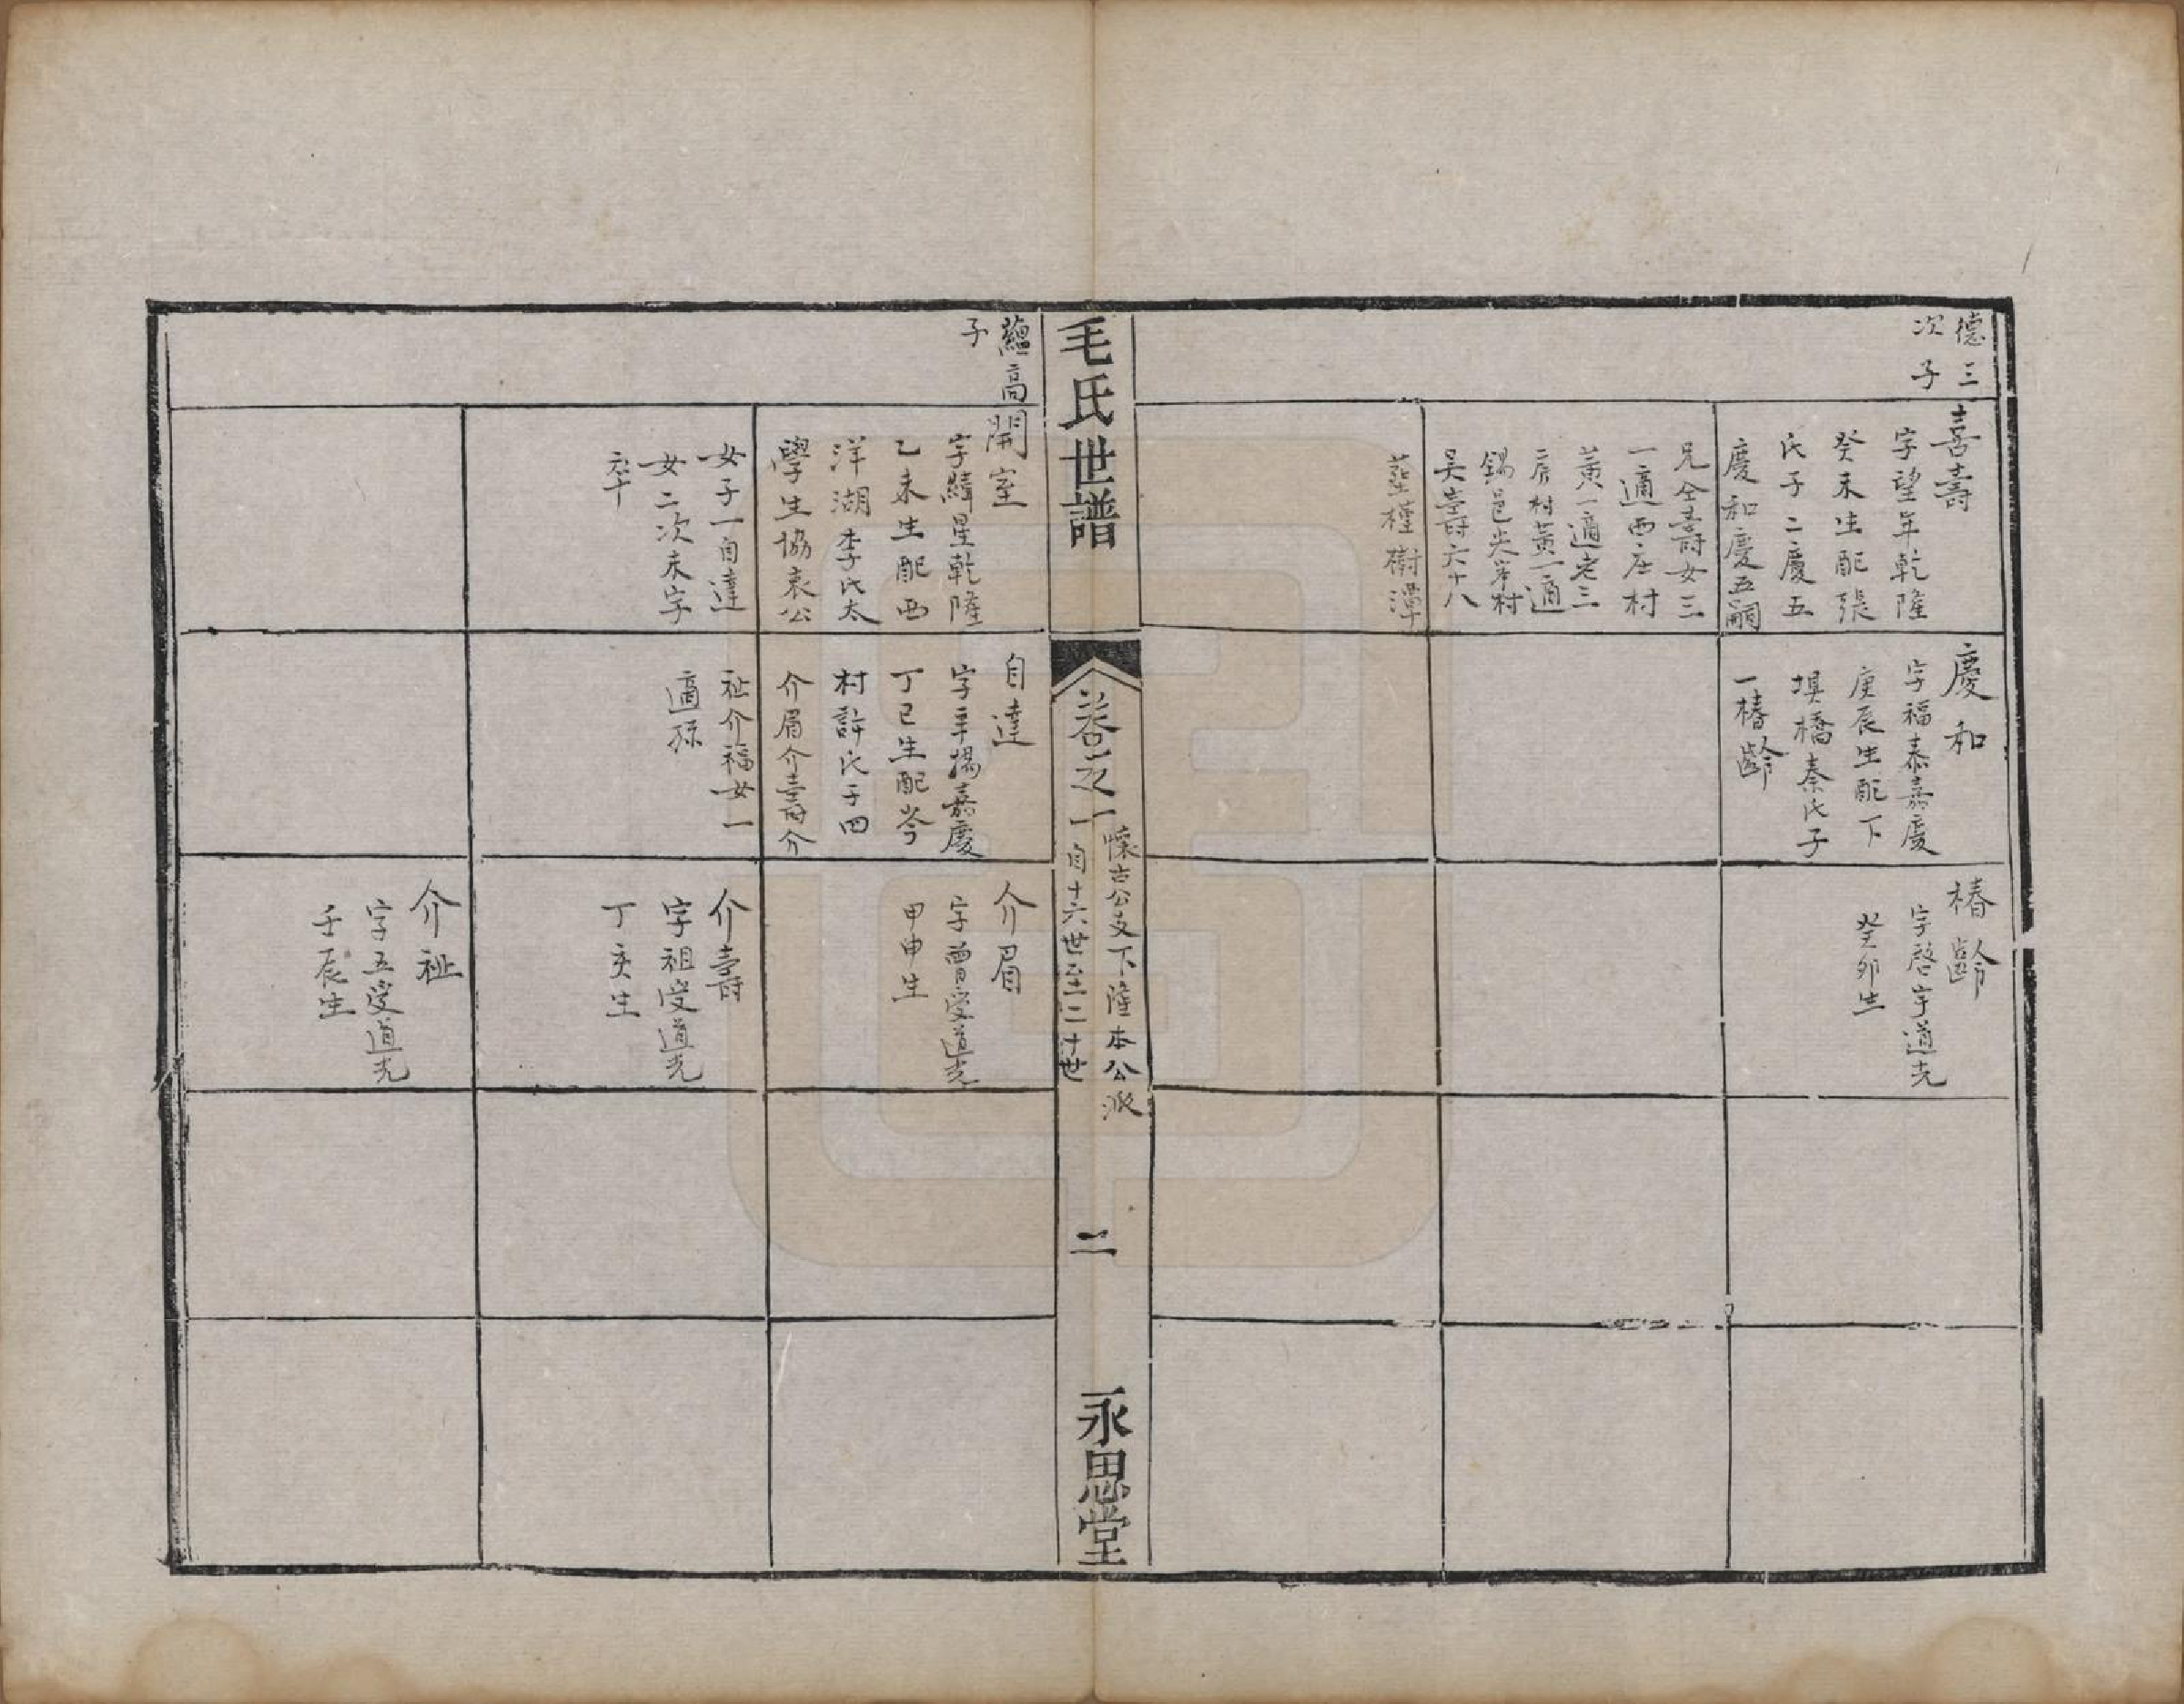 德三
次子
喜壽
字望年乾隆
癸未生配張
氏子二慶五
慶和慶五嗣
兄全壽女三
一適西庄村
黃一適宅三
房村黃一適
錫邑尖岸村
吳壽六十八
塟槿樹潭
慶和
字福泰嘉慶
庚辰生配下
塤橋秦氏子
一椿齡
椿齡
字啓宇道光
癸卯生
毛氏世譜
卷之一
懷古公支下薩本公派
自十六世至二十世
二
永思堂
蘊高
子
開室
字緯星乾隆
乙未生配西
洋湖李氏太
學生協衷公
女子一自達
女二次未字
卒
自達
字辛揚嘉慶
丁巳生配岑
村許氏子四
介眉介壽介
祉介福女一
適孫
介眉
字曾受道光
甲申生
介壽
字祖受道光
丁亥生
介祉
字五受道光
壬辰生